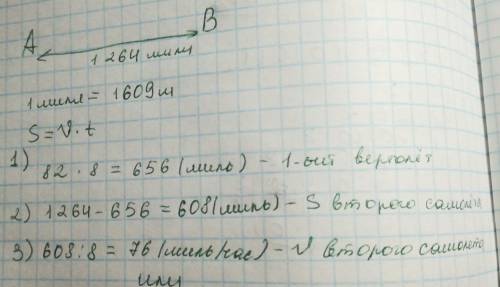 A B
1 264 мили
1 миля = 1609 м
S = V · t
1) 82 · 8 = 656 (миль) - 1-ый вертолёт
2) 1264 - 656 = 608 (миль) - S второго самолета
3) 608 : 8 = 76 (миль/час) - V второго самолета
или